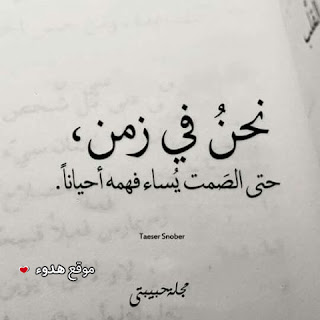 نحنُ في زمن،
حتى الصَمت يُساء فهمه أحياناً.
Taeser Snober
موقع هدوء
مجلة حبيبتي